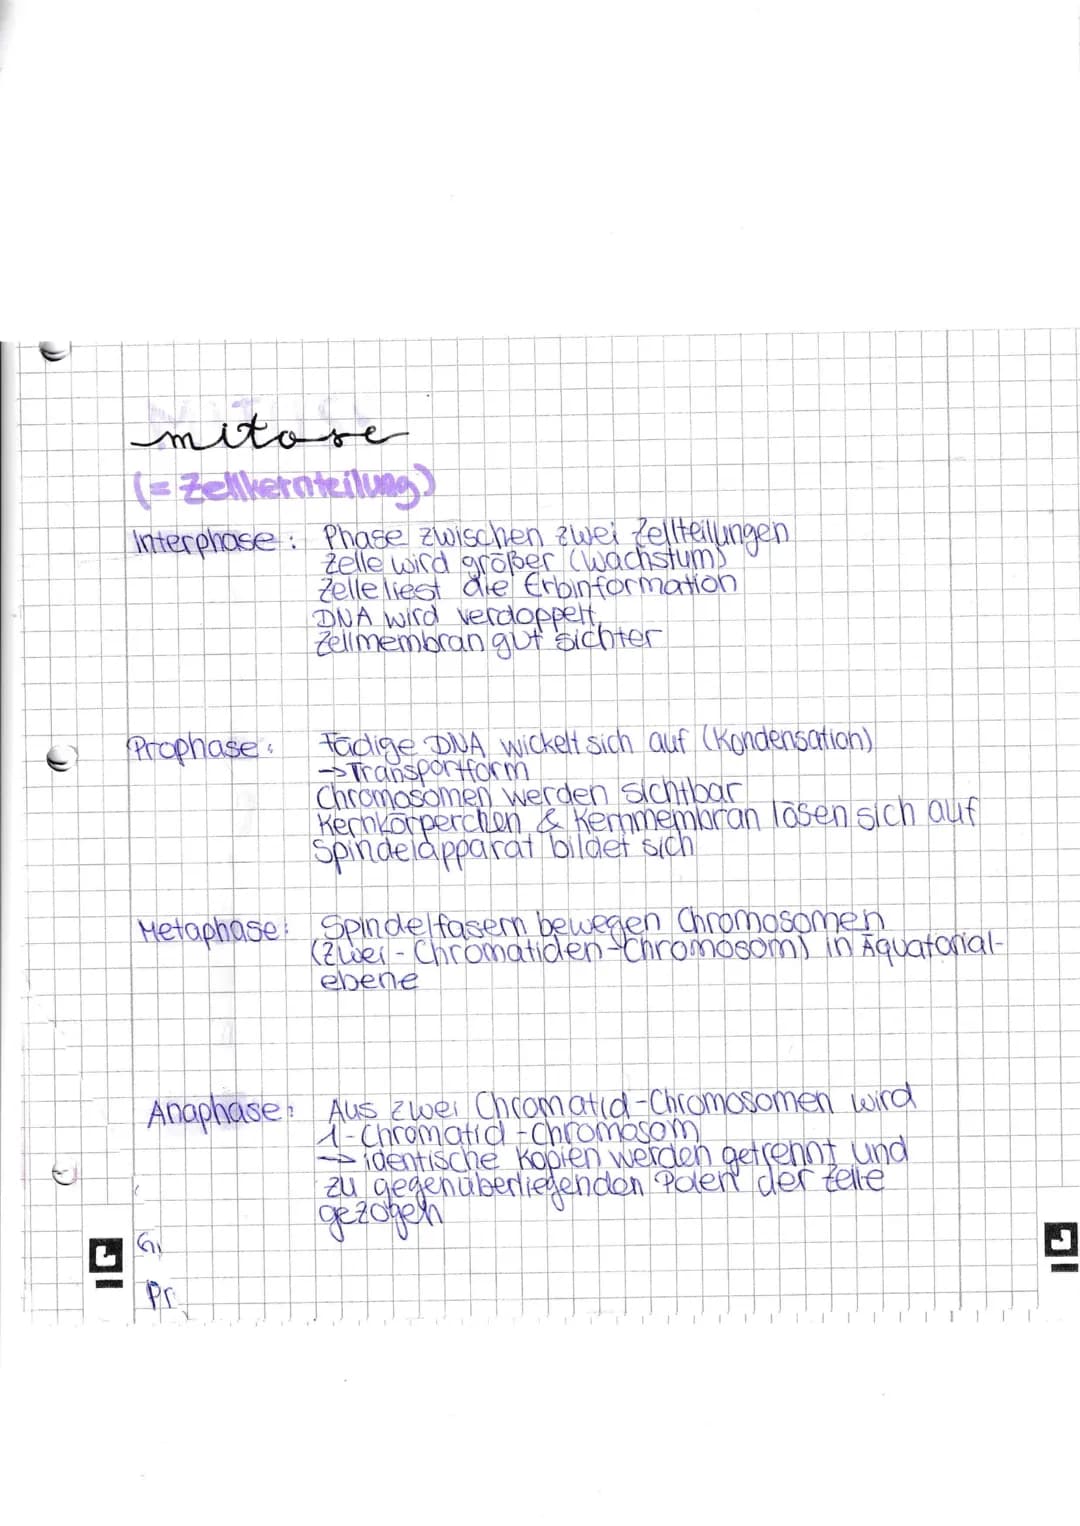 mitose
(= Zellkernteilung)
Interphase: Phase zwischen zwei Zellteilungen
Zelle wird größer (Wachstum)
Zelle liest die Erbinformation
DNA wird verdoppelt
Zellmembran gut sichter
Prophase: Fädige DNA wickelt sich auf (Kondensation)
→ Transportform
Chromosomen werden sichtbar
Kernkörperchen & Kernmembran lösen sich auf
Spindelapparat bildet sich
Metaphase: Spindelfasern bewegen Chromosomen
(Zwei-Chromatiden-Chromosom) in Äquatorial-
ebene
Anaphase: Aus zwei Chromatid-Chromosomen wird
1-Chromatid-Chromosom
→ identische Kopien werden getrennt und
zu gegenüberliegenden Polen der Zelle
gezogen
G1
Pr